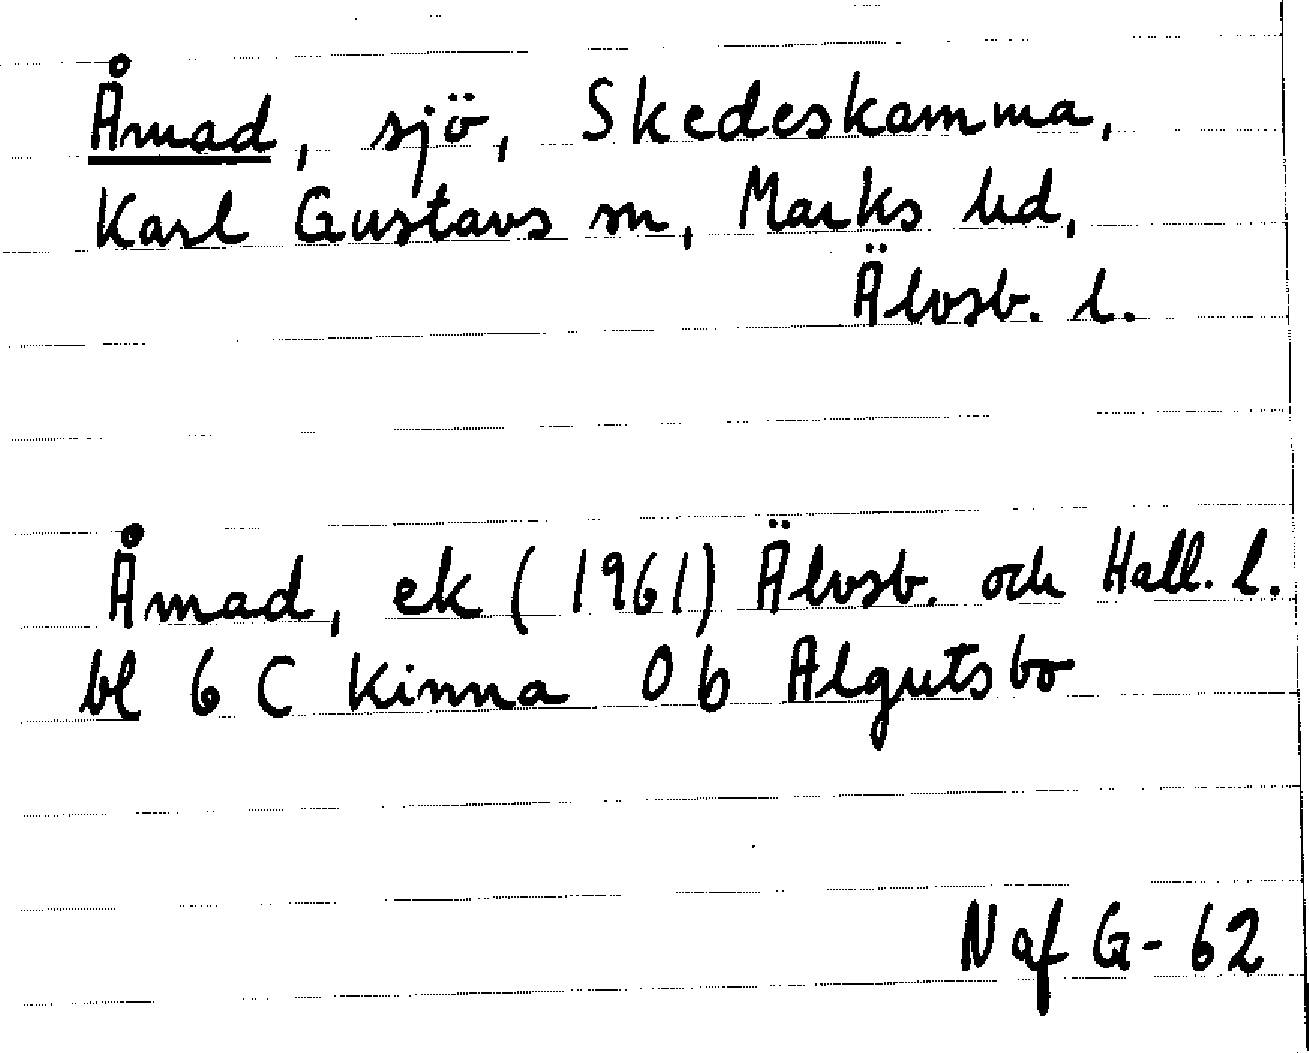 Åmad, sjö, Skedeskamma,
Karl Gustavs sn, Marks hd,
Älvsb. l.
Åmad, ek (1961) Älvsb. och Hall. l.
bl 6 C Kinna 0 b Algutsbo
N af G - 62